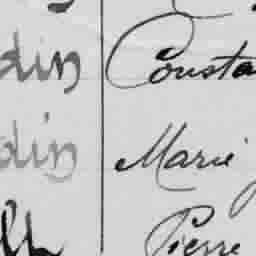 din Consta
din Marie
Pierre